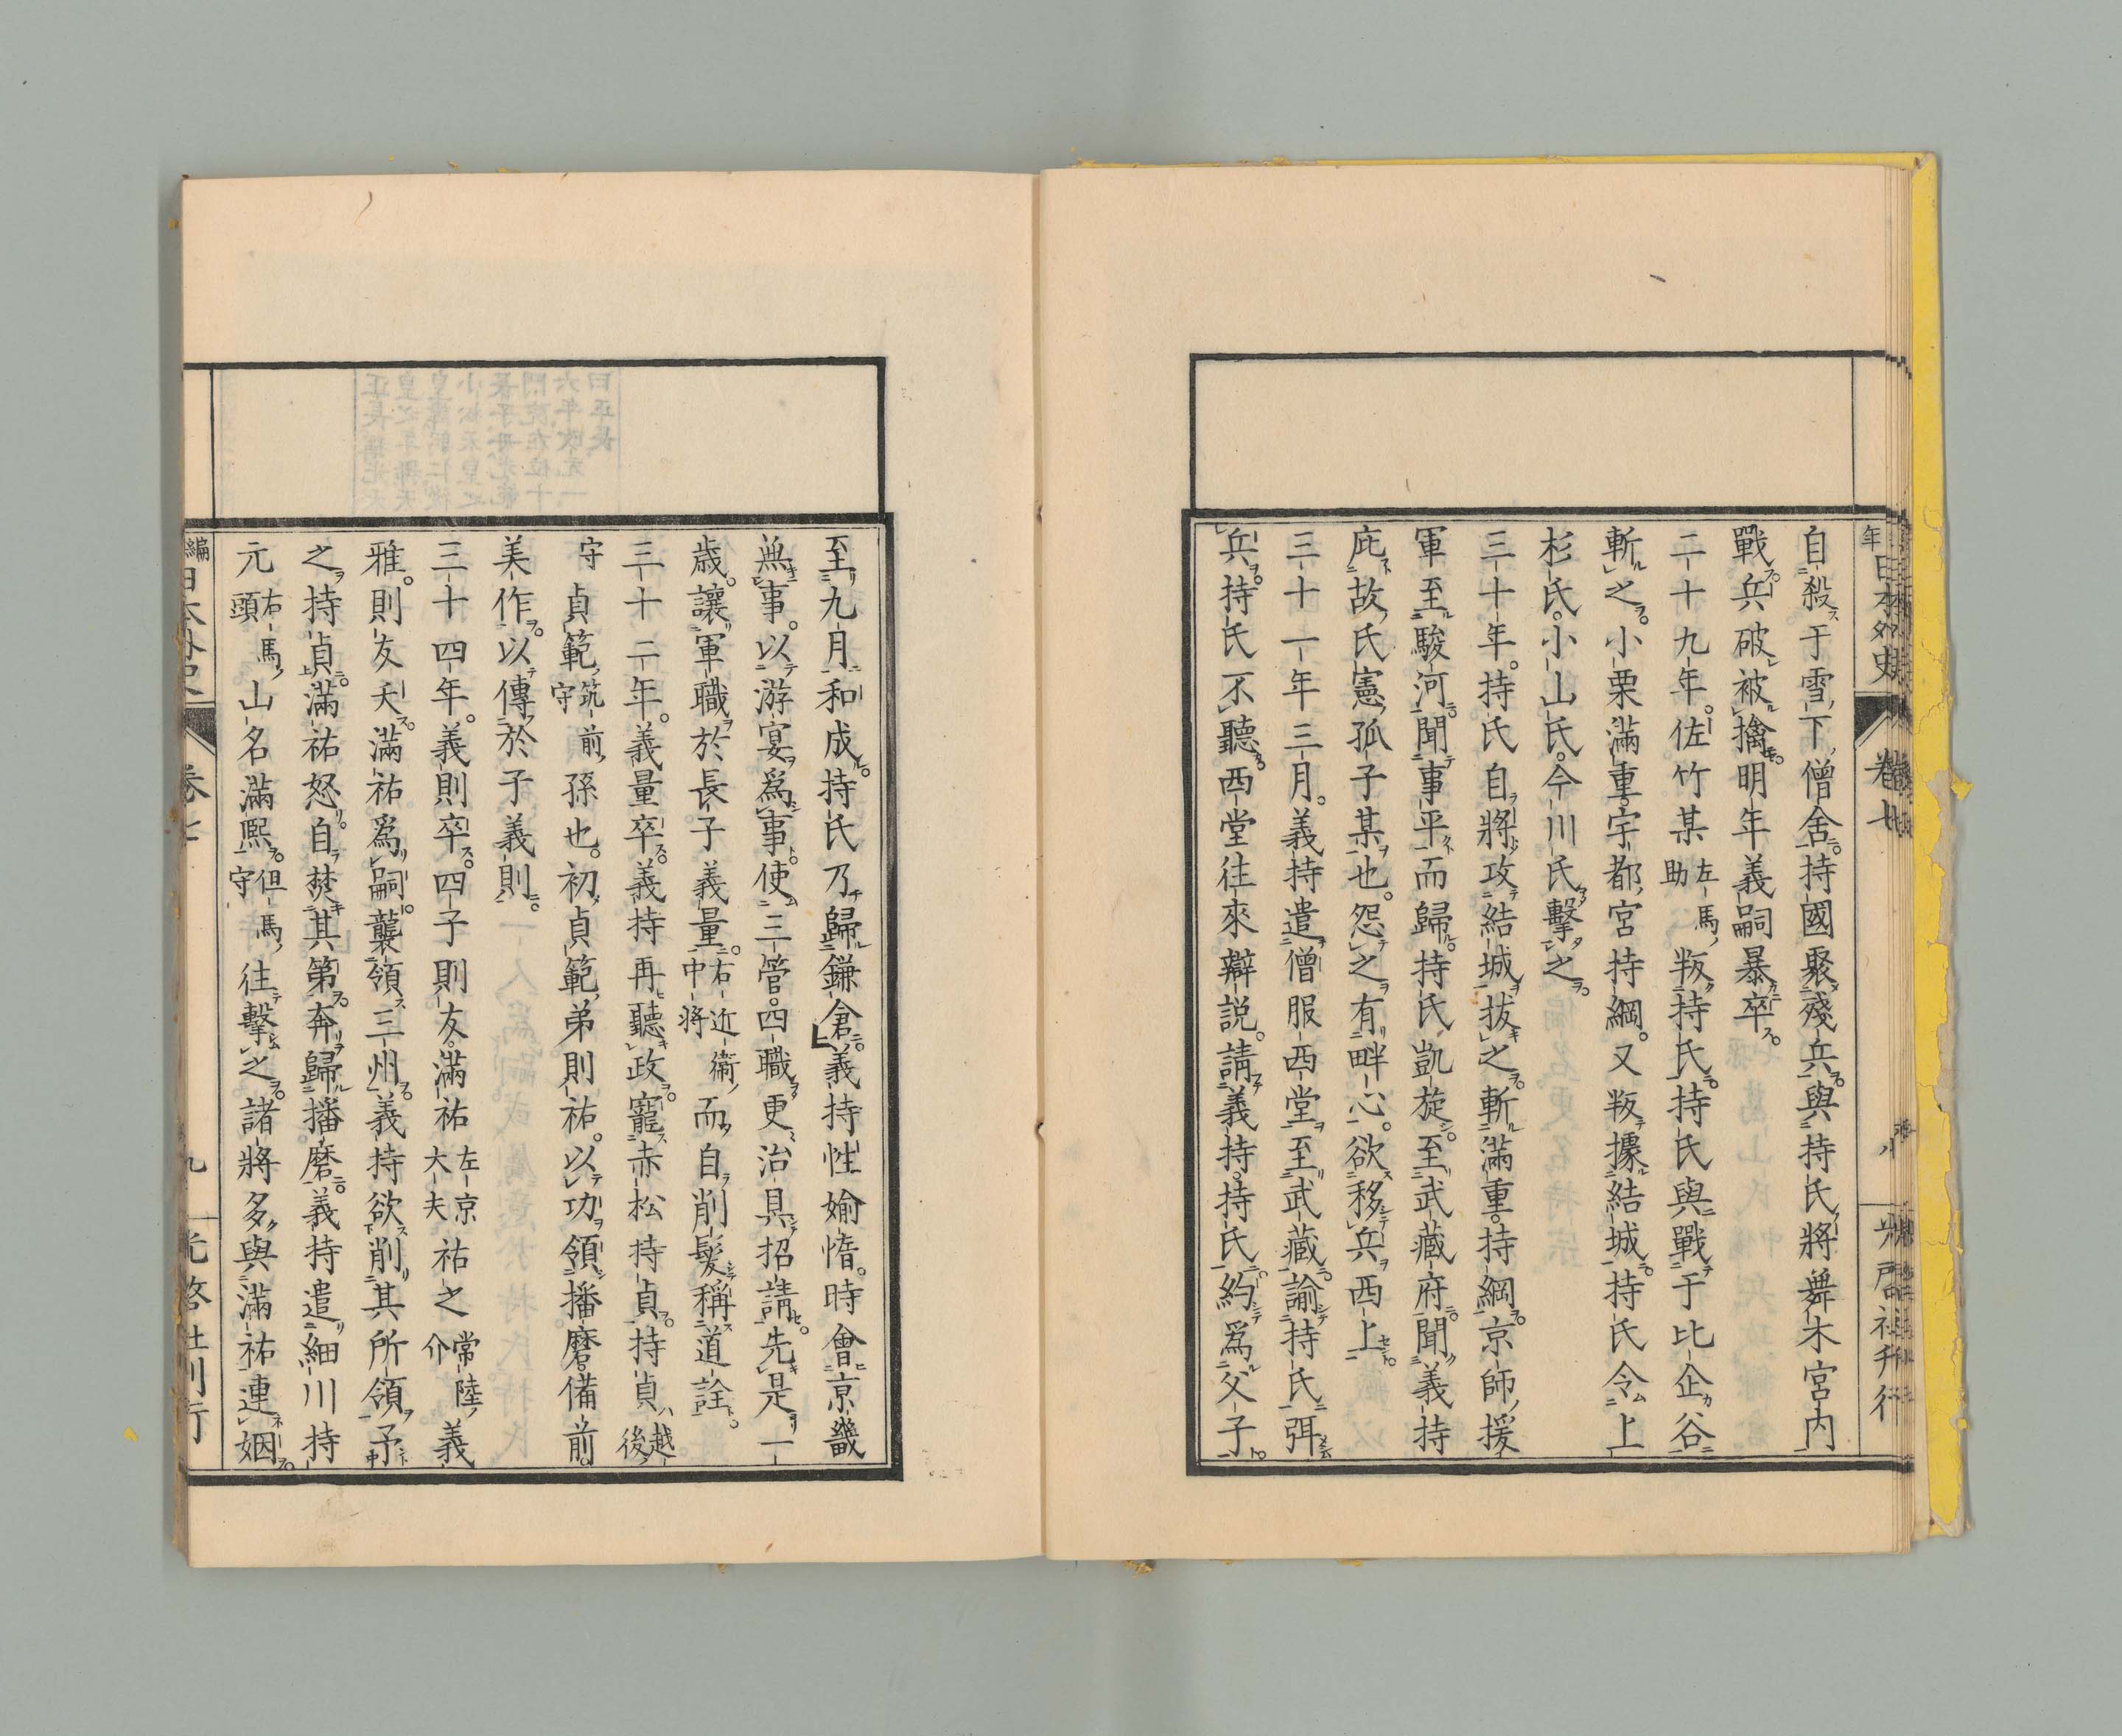 自殺于雪下僧舍。持國聚殘兵。與持氏將舞木宮内
戰。兵破被擒。明年義嗣暴卒。
二十九年。佐竹某左馬助叛持氏。持氏與戰于比企谷
斬之。小栗滿重。宇都宮持綱。又叛據結城。持氏令上
杉氏。小山氏。今川氏擊之。
三十年。持氏自將攻結城。拔之。斬滿重。持綱。京師援
軍至駿河。聞事平而歸。持氏凱旋。至武藏府。聞義持
庇故氏憲孤子某也。怨之。有畔心。欲移兵西上。
三十一年三月。義持遣僧服西堂至武藏。諭持氏弭
兵。持氏不聽。西堂往來辯説。請義持。持氏約爲父子。
至九月和成。持氏乃歸鎌倉。義持性婾惰。時會京畿
無事。以游宴爲事。使三管。四職更治具招請。先是一
歳。讓軍職於長子義量。右近衞中將而自削髮稱道詮。
三十二年。義量卒。義持再聽政。寵赤松持貞。持貞越後
守貞範筑前守孫也。初貞範弟則祐。以功領播磨。備前。
美作。以傳於子義則。
三十四年。義則卒。四子則友。滿祐左京大夫祐之常陸介義
雅。則友夭。滿祐爲嗣。襲領三州。義持欲削其所領予
之持貞。滿祐怒。自焚其第。奔歸播磨。義持遣細川持
元右馬頭山名滿熙但馬守往擊之。諸將多與滿祐連姻。